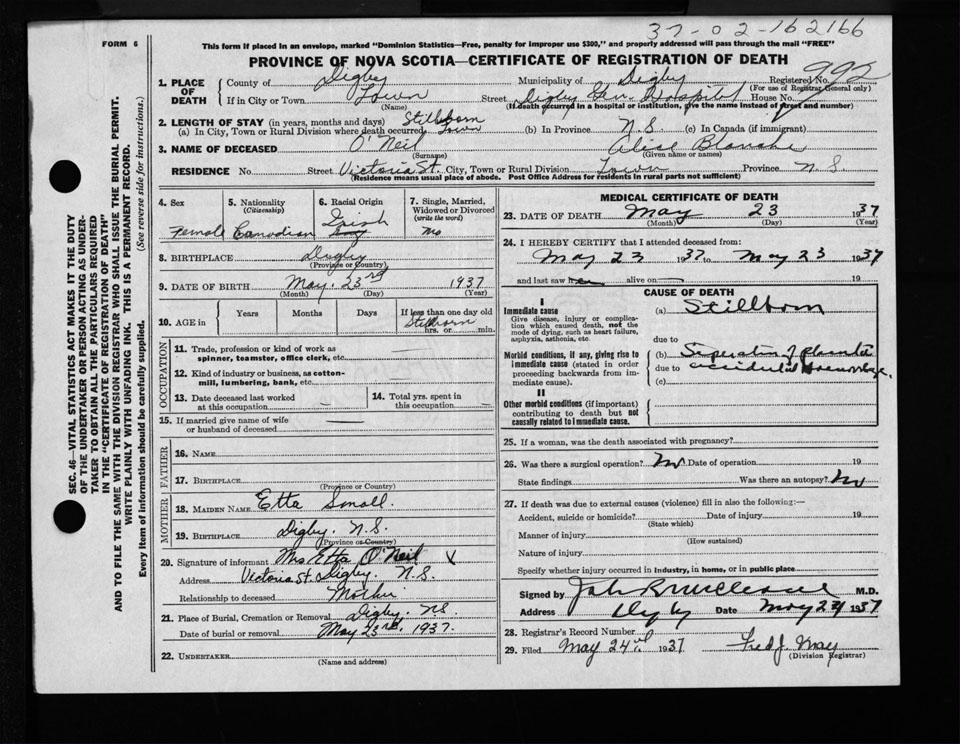 37-02-162166
FORM 6
This form if placed in an envelope, marked "Dominion Statistics—Free, penalty for improper use $300," and properly addressed will pass through the mail "FREE"
PROVINCE OF NOVA SCOTIA—CERTIFICATE OF REGISTRATION OF DEATH
SEC. 46—VITAL STATISTICS ACT MAKES IT THE DUTY
OF THE UNDERTAKER OR PERSON ACTING AS UNDER-
TAKER TO OBTAIN ALL THE PARTICULARS REQUIRED
IN THE "CERTIFICATE OF REGISTRATION OF DEATH"
AND TO FILE THE SAME WITH THE DIVISION REGISTRAR WHO SHALL ISSUE THE BURIAL PERMIT.
WRITE PLAINLY WITH UNFADING INK. THIS IS A PERMANENT RECORD.
Every item of information should be carefully supplied. (See reverse side for instructions.)
1. PLACE OF DEATH County of Digby Municipality of Digby Registered No. 992
(For use of Registrar General only)
If in City or Town Town Street Digby Gen. Hospital House No.
(Name) (If death occurred in a hospital or institution, give the name instead of street and number)
2. LENGTH OF STAY (in years, months and days) Stillborn
(a) In City, Town or Rural Division where death occurred Town (b) In Province N.S. (c) In Canada (if immigrant)
3. NAME OF DECEASED O'Neil Alice Blanche
(Surname) (Given name or names)
RESIDENCE No. Street Victoria St. City, Town or Rural Division Town Province N.S.
(Residence means usual place of abode. Post Office Address for residents in rural parts not sufficient)
4. Sex Female
5. Nationality (Citizenship) Canadian
6. Racial Origin Irish
7. Single, Married, Widowed or Divorced (write the word) no
8. BIRTHPLACE Digby
(Province or Country)
9. DATE OF BIRTH May. 23rd 1937
(Month) (Day) (Year)
10. AGE in Years Months Days If less than one day old
Stillborn
hrs. or min.
OCCUPATION
11. Trade, profession or kind of work as spinner, teamster, office clerk, etc.
12. Kind of industry or business, as cotton-mill, lumbering, bank, etc.
13. Date deceased last worked at this occupation
14. Total yrs. spent in this occupation
15. If married give name of wife or husband of deceased
FATHER
16. NAME
17. BIRTHPLACE
(Province or Country)
MOTHER
18. MAIDEN NAME Etta Small.
19. BIRTHPLACE Digby. N.S.
(Province or Country)
20. Signature of informant Mrs Etta O'Neil X
Address Victoria St. Digby. N.S.
Relationship to deceased Mother
21. Place of Burial, Cremation or Removal Digby. NS.
Date of burial or removal May 23rd, 1937.
22. UNDERTAKER
(Name and address)
MEDICAL CERTIFICATE OF DEATH
23. DATE OF DEATH May 23 1937
(Month) (Day) (Year)
24. I HEREBY CERTIFY that I attended deceased from:
May 23 1937 to May 23 1937
and last saw her alive on 19
CAUSE OF DEATH
I
Immediate cause
Give disease, injury or complication which caused death, not the mode of dying, such as heart failure, asphyxia, asthenia, etc.
(a) Stillborn
due to
Morbid conditions, if any, giving rise to immediate cause (stated in order proceeding backwards from immediate cause).
(b) Seperation of placenta
due to accidental haemorrhage.
(c)
II
Other morbid conditions (if important) contributing to death but not causally related to immediate cause.
25. If a woman, was the death associated with pregnancy?
26. Was there a surgical operation? No Date of operation 19
State findings Was there an autopsy? No
27. If death was due to external causes (violence) fill in also the following:—
Accident, suicide or homicide? Date of injury 19
(State which)
Manner of injury
(How sustained)
Nature of injury
Specify whether injury occurred in industry, in home, or in public place
Signed by M.D.
Address Digby Date May 24 1937
28. Registrar's Record Number
29. Filed May 24th 1937 Fred J. May
(Division Registrar)